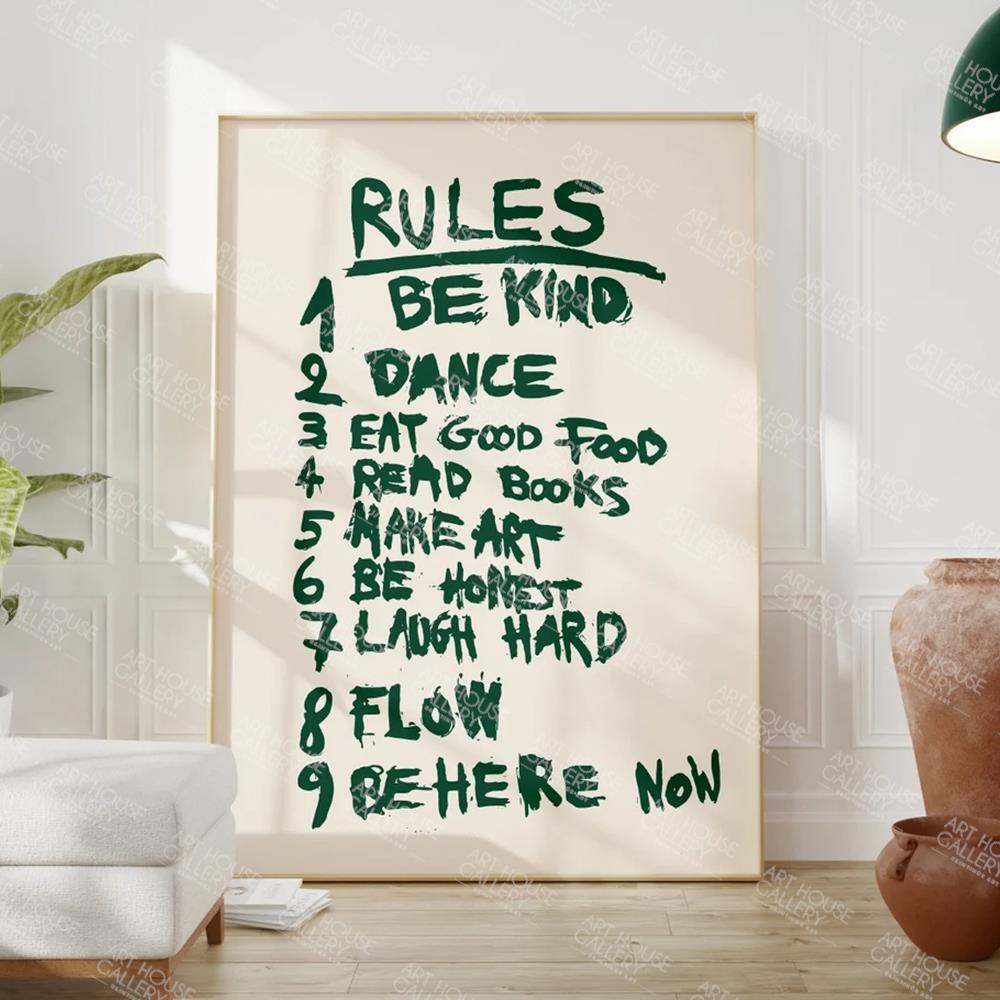 RULES
1 BE KIND
2 DANCE
3 EAT GOOD FOOD
4 READ BOOKS
5 MAKE ART
6 BE HONEST
7 LAUGH HARD
8 FLOW
9 BE HERE NOW
ART HOUSE
GALLERY